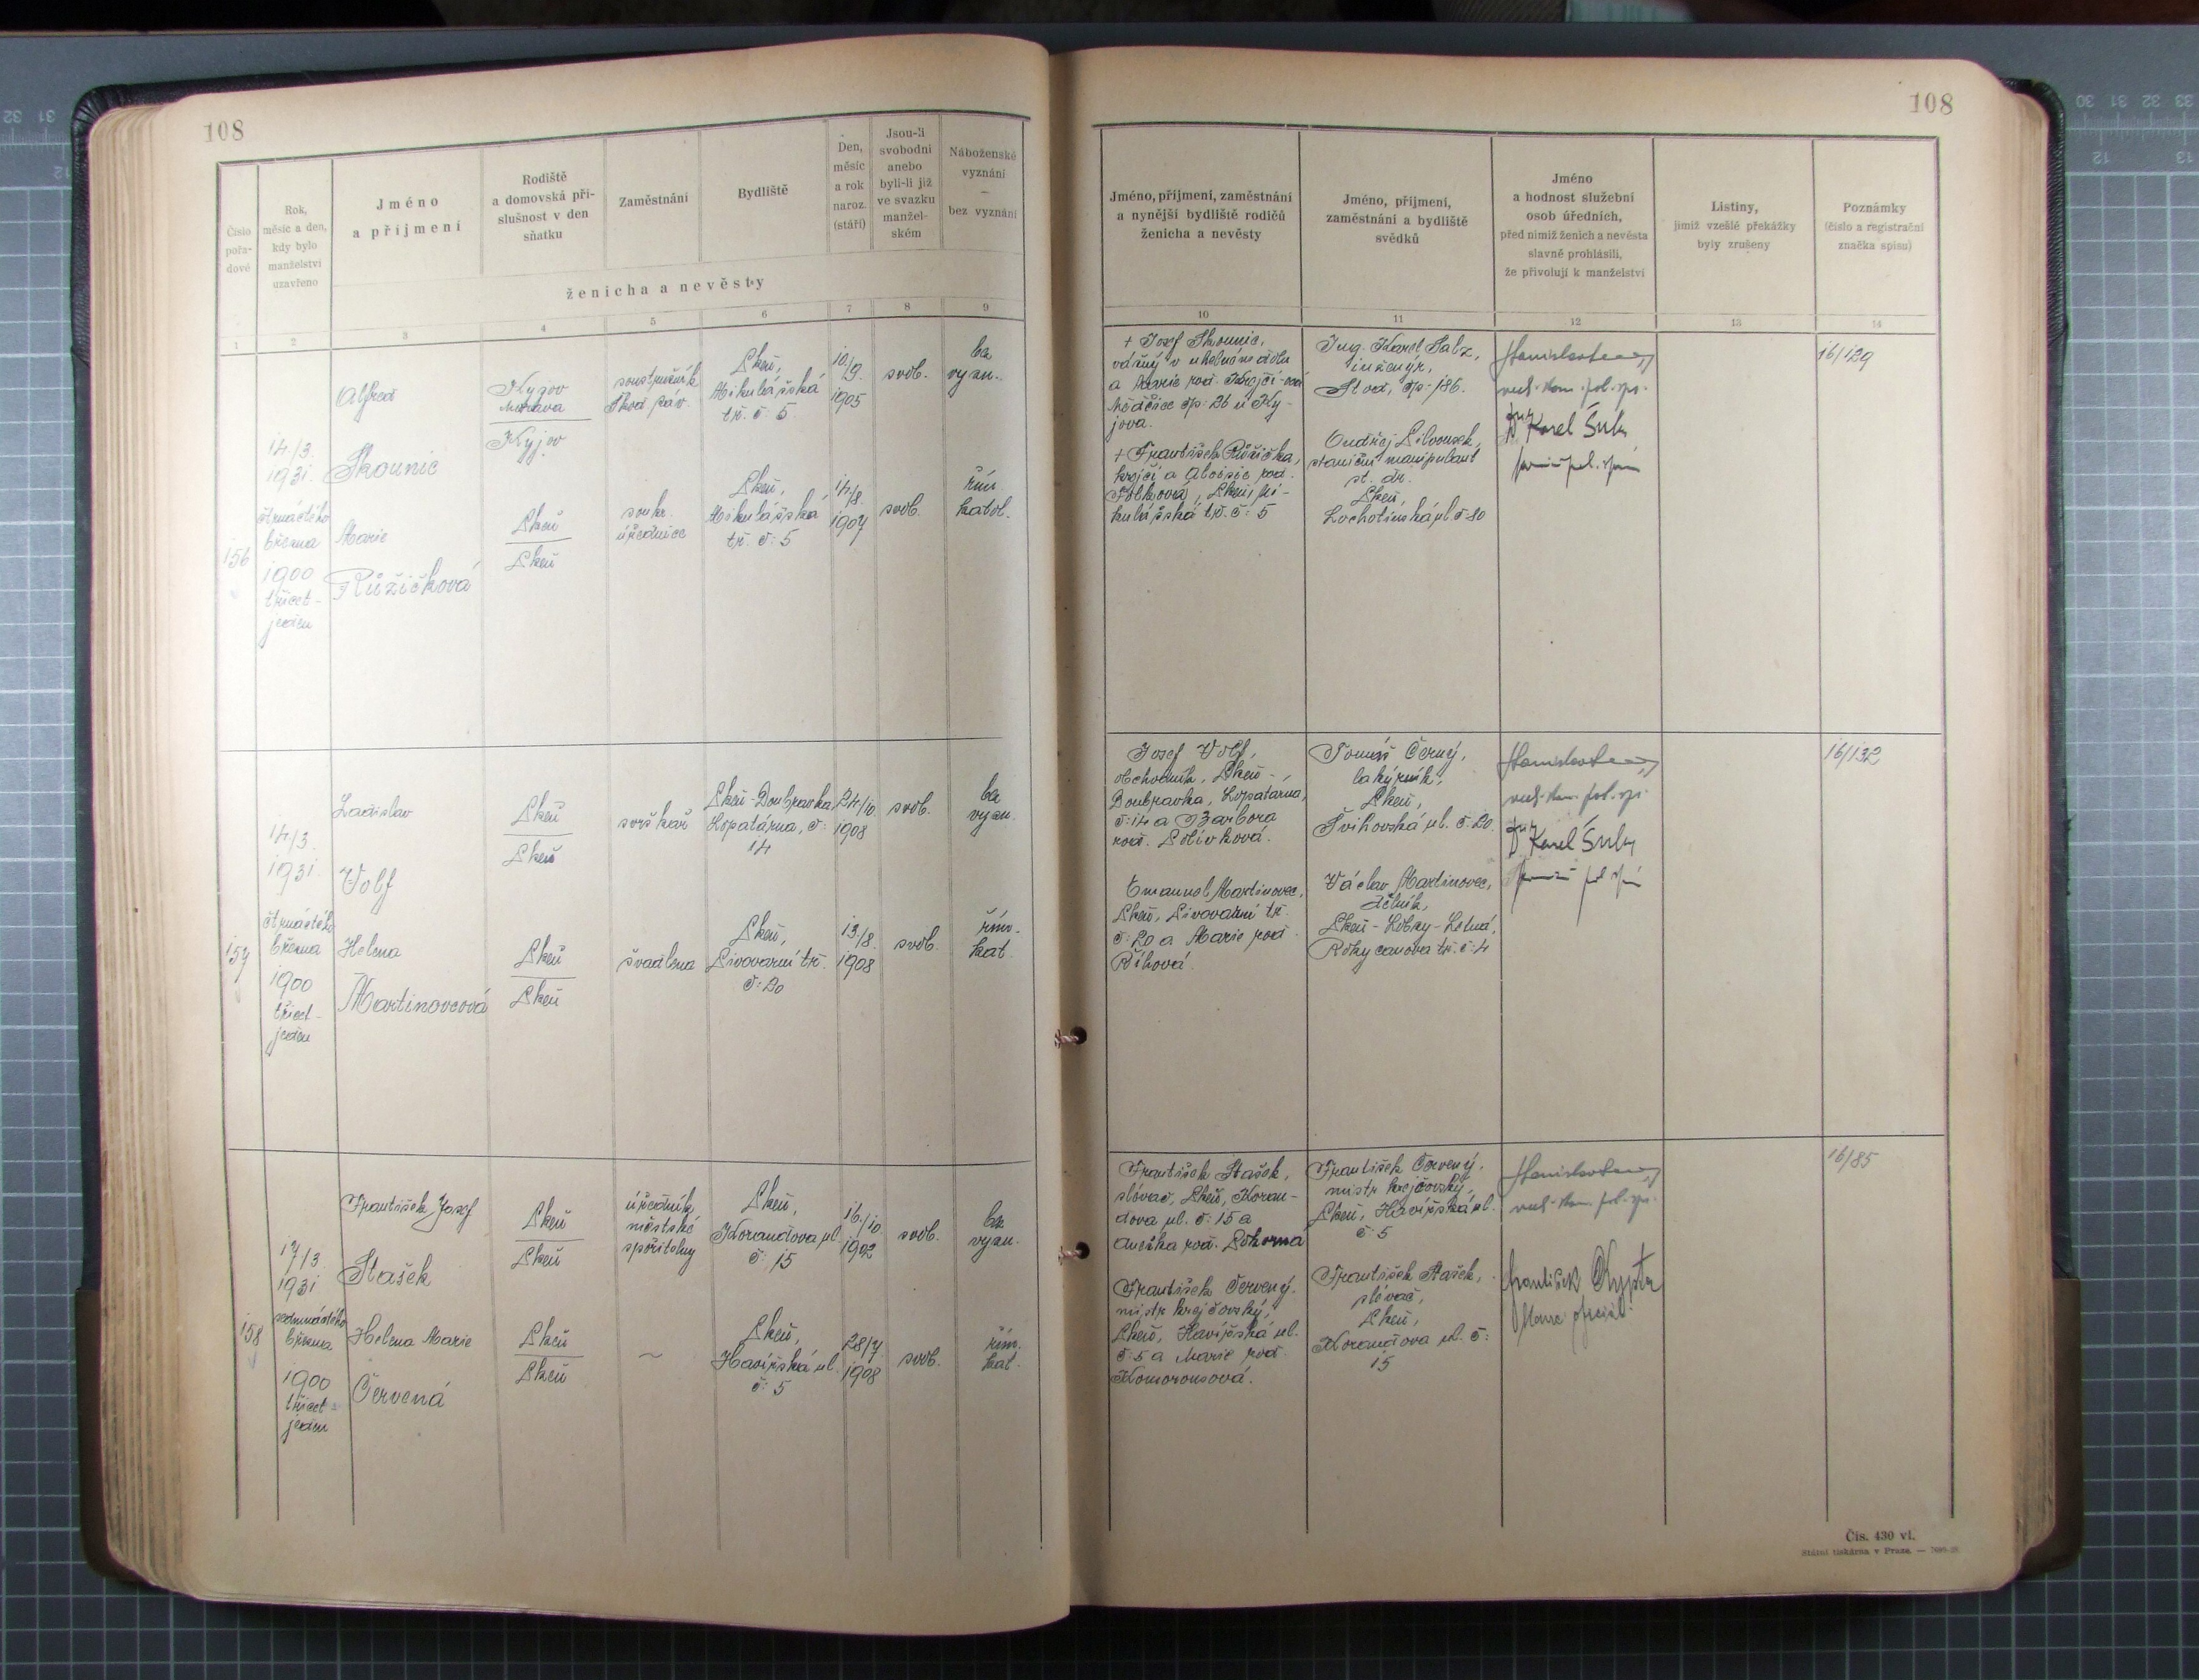 108
108
Číslo
pořa-
dové
Rok,
měsíc a den,
kdy bylo
manželství
uzavřeno
Jméno
a příjmení
Rodiště
a domovská pří-
slušnost v den
sňatku
Zaměstnání
Bydliště
Den,
měsíc
a rok
naroz.
(stáří)
Jsou-li
svobodni
anebo
byli-li již
ve svazku
manžel-
ském
Náboženské
vyznání
—
bez vyznání
ženicha a nevěsty
1 2 3 4 5 6 7 8 9
Jméno, příjmení, zaměstnání
a nynější bydliště rodičů
ženicha a nevěsty
Jméno, příjmení,
zaměstnání a bydliště
svědků
Jméno
a hodnost služební
osob úředních,
před nimiž ženich a nevěsta
slavně prohlásili,
že přivolují k manželství
Listiny,
jimiž vzešlé překážky
byly zrušeny
Poznámky
(číslo a registrační
značka spisu)
10 11 12 13 14
156
14/3.
1931.
čtrnáctého
března
1900
třicet-
jeden
Alfred
Skounic
Kygov
Morava
Kyjov
soustružník
Škod. záv.
Plzeň,
Mikulášská
tř. č: 5.
10/9.
1905
svob.
bez
vyzn.
Marie
Růžičková
Plzeň
Plzeň
soukr.
úřednice
Plzeň,
Mikulášská
tř. č: 5
14/8
1907
svob.
řím.
katol.
+ Josef Skounic,
vážný v uhelném dolu
a Marie roz. Krejčí-ová
čp: 26 u Ky-
jova.
+ František Růžička,
krejčí a Aloisie roz.
Plzeň, Mi-
kulášská tř. č: 5
Ing. Karel Salz,
inženýr,
Stod, čp: 186.
Ondřej Libousek,
staniční manipulant
st. dr.
Plzeň,
Lochotínská ul. č 80
Dr Karel Šula
16/129
157
14/3.
1931.
čtrnáctého
března
1900
třicet-
jeden
Ladislav
Wolf
Plzeň
Plzeň
svrškař
Plzeň-Doubravka
Lopatárna, č:
14
24/10.
1908
svob.
bez
vyzn.
Helena
Martinovcová
Plzeň
Plzeň
švadlena
Plzeň,
Pivovarní tř.
č: 20
13/8.
1908
svob.
řím.
kat.
Josef Wolf,
obchodník, Plzeň-
Doubravka, Lopatárna,
č: 14 a Barbora
roz. Polívková.
Emanuel Martinovec,
Plzeň, Pivovarní tř.
č: 20 a Marie roz.
Říhová.
Tomáš Černý,
lakýrník,
Plzeň,
Švihovská ul. č: 20.
Václav Martinovec,
dělník,
Plzeň-Lobzy-Letná,
Rokycanova tř. č: 4
Dr Karel Šula
16/132
158
17/3
1931
sedmnáctého
března
1900
třicet-
jeden
František Josef
Stašek
Plzeň
Plzeň
úředník
městské
spořitelny
Plzeň,
Korandova ul.
č: 15
16/10.
1902
svob.
bez
vyzn.
Helena Marie
Červená
Plzeň
Plzeň
~
Plzeň,
Havířská ul.
č: 5
28/7
1908
svob.
řím.
kat.
František Stašek,
slévač, Plzeň, Koran-
dova ul. č: 15 a
Anežka roz. Pokorná
František Červený,
mistr krejčovský,
Plzeň, Havířská ul.
č: 5 a Marie roz.
Komorousová.
František Červený,
mistr krejčovský,
Plzeň, Havířská ul.
č: 5
František Stašek,
slévač,
Plzeň,
Korandova ul. č:
15
František
16/85
Čís. 430 vl.
Státní tiskárna v Praze. —